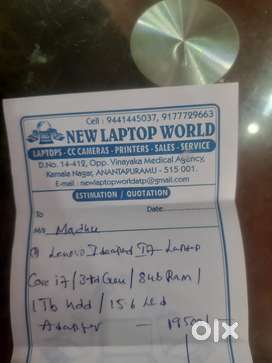 Cell : 9441445037, 9177729663
NEW LAPTOP WORLD
LAPTOPS - CC CAMERAS - PRINTERS - SALES - SERVICE
D.No. 14-412, Opp. Vinayaka Medical Agency,
Kamala Nagar, ANANTAPURAMU - 515 001.
E-mail : newlaptopworldatp@gmail.com
ESTIMATION / QUOTATION
To
Date
M/s Madhu
Lenovo Ideapad I7 Laptop
Core i7 / 3rd Gen / 8GB Ram /
1Tb hdd / 15.6 Led
Adapter - 19500/-
olx